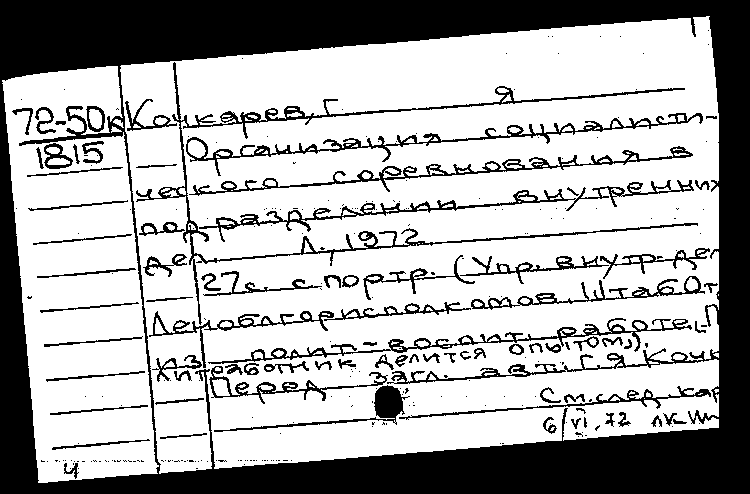 72-50к Кочкарев, Г Я
1815
Организация социалисти-
ческого соревнования в
подразделении внутренних
дел. Л., 1972.
27с. с портр. (Упр. внутр. дел
Леноблгорисполкомов. Штаб От
полит-воспит. работе. П
литработник делится опытом).
Перед загл. авт.: Г.Я. Кочк
См. след. кар
6/VI, 72
ч